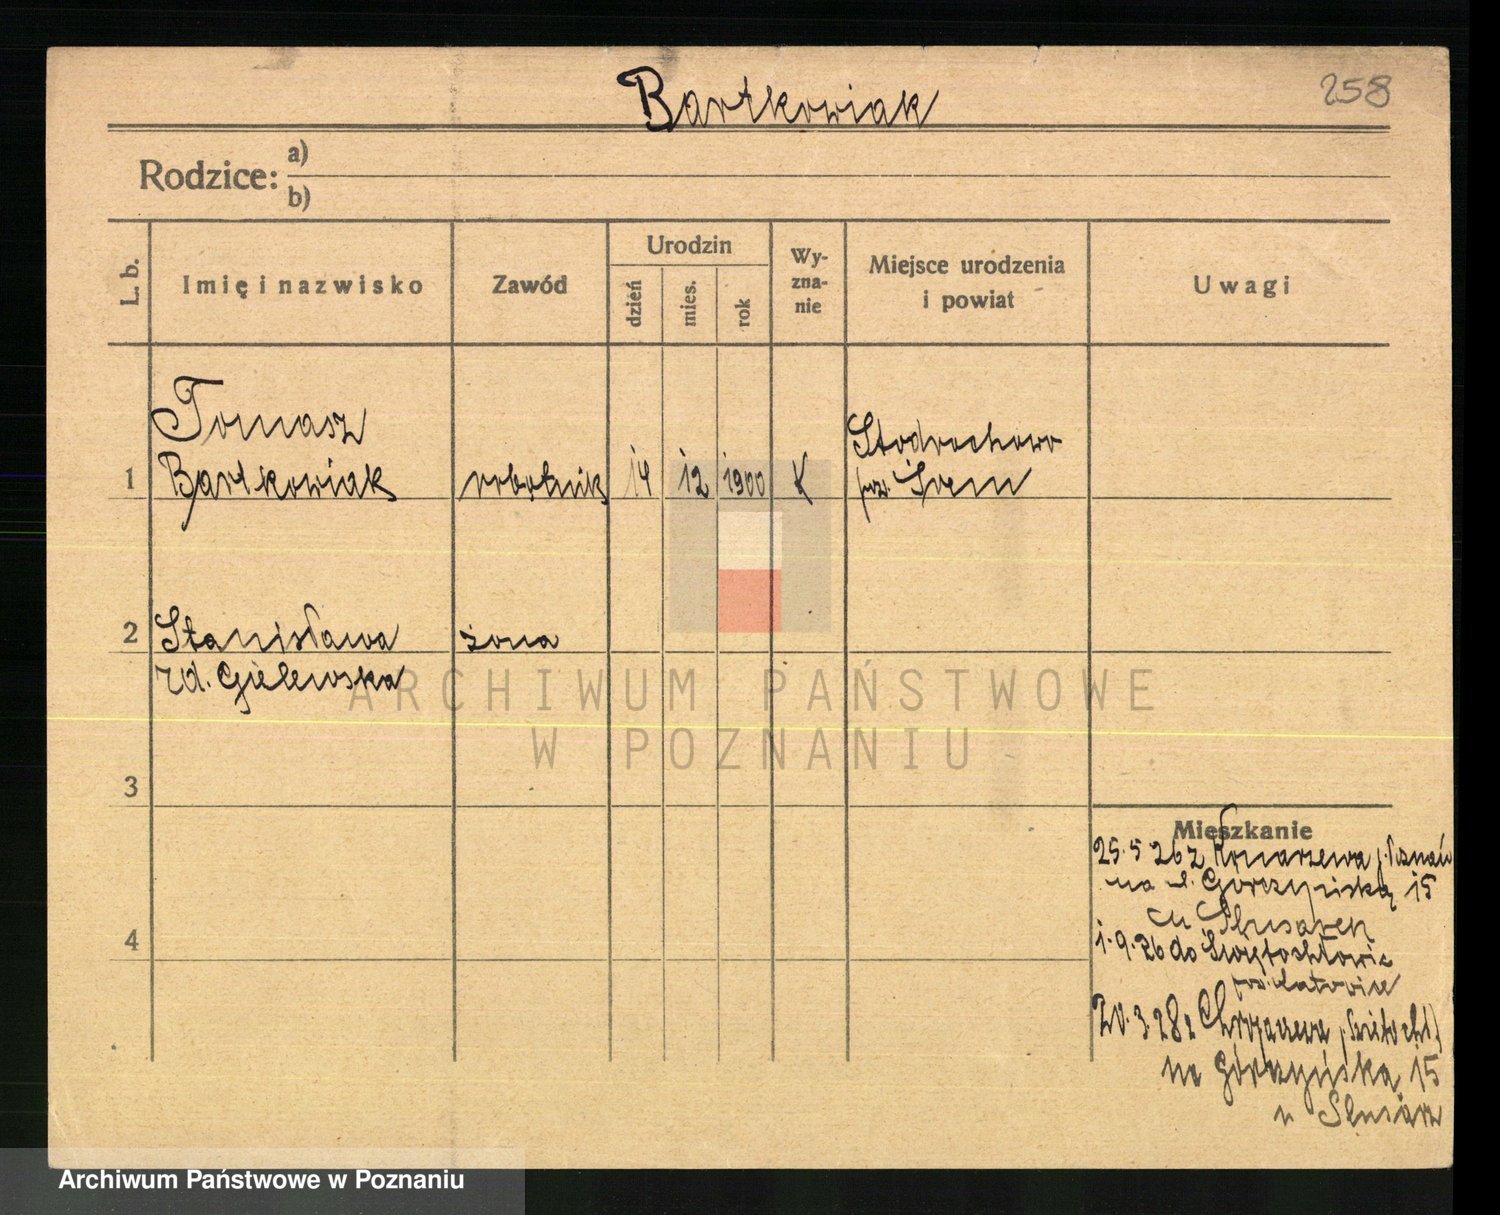 Bartkowiak
258
Rodzice:
a)
b)
L. b.
Imię i nazwisko
Zawód
Urodzin
dzień
mies.
rok
Wy-
zna-
nie
Miejsce urodzenia
i powiat
Uwagi
Tomasz
1 Bartkowiak robotnik 14 12 1900 K
Stodrochowo
pow. Śrem
2 Stanisława żona
rd. Gielewska
ARCHIWUM PAŃSTWOWE
W POZNANIU
3
4
Mieszkanie
25.5 26 z Konarzewa p. Poznań
na ul. Górczyńską 15
1.9.26 do Świętochłowic
pow. Katowice
20.3.28 z
na Górczyńska 15
u
Archiwum Państwowe w Poznaniu